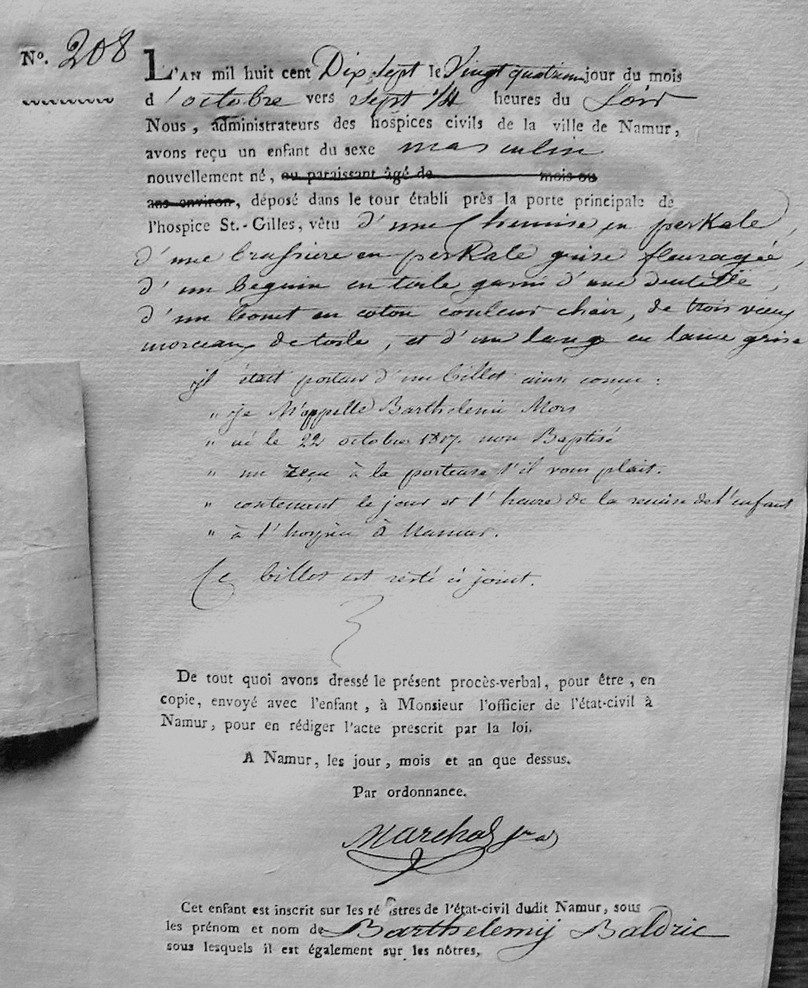 No. 208
L'AN mil huit cent Dix sept le Vingt quatrieme jour du mois
d'octobre vers sept 1/4 heures du Soir
Nous, administrateurs des hospices civils de la ville de Namur,
avons reçu un enfant du sexe masculin
nouvellement né, ou paraissant âgé de mois ou
ans environ, déposé dans le tour établi près la porte principale de
l'hospice St.-Gilles, vêtu d'une Chemise en perkale,
d'une brassiere en perkale grise fleuragée,
d'un beguin en toile garni d'une dentelle,
d'un bonet en coton couleur chair, de trois vieux
morceaux de toile, et d'un lange en laine grise
il était porteur d'un billet ainsi conçu :
" je M'appelle Barthelemi Mors
" né le 22 octobre 1817. non Baptisé
" un reçu à la porteuse s'il vous plait.
" contenant le jour et l'heure de la remise de l'enfant
" à l'hospice à Namur.
Ce billet est resté ci joint.
De tout quoi avons dressé le présent procès-verbal, pour être, en
copie, envoyé avec l'enfant, à Monsieur l'officier de l'état-civil à
Namur, pour en rédiger l'acte prescrit par la loi.
A Namur, les jour, mois et an que dessus.
Par ordonnance.
Marchal
Cet enfant est inscrit sur les registres de l'état-civil dudit Namur, sous
les prénom et nom de Barthelemij Baldric
sous lesquels il est également sur les nôtres.